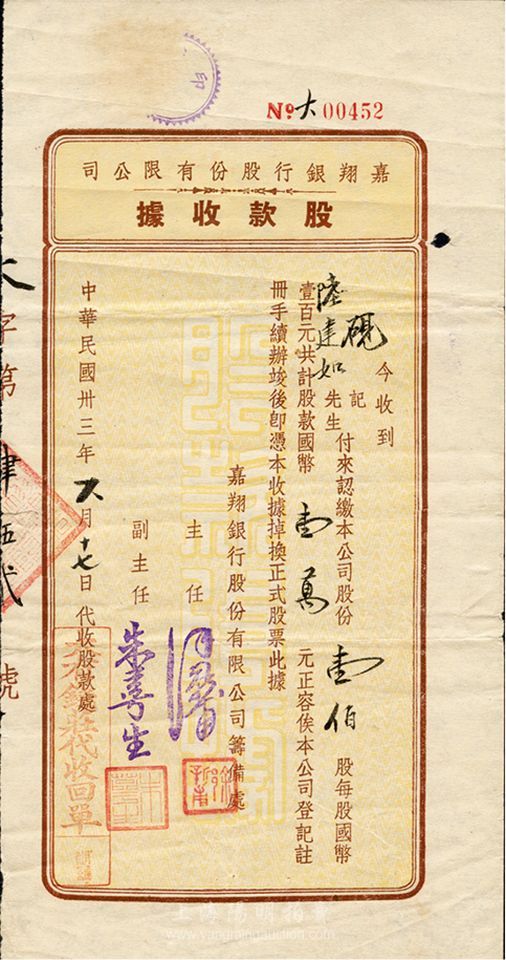 No 大 00452
嘉翔銀行股份有限公司
股款收據
今收到
硯記
陸建如先生付來認繳本公司股份壹佰股每股國幣
壹百元共計股款國幣壹萬元正容俟本公司登記註
冊手續辦竣後即憑本收據掉換正式股票此據
嘉翔銀行股份有限公司籌備處
主任
副主任 朱壽生
中華民國卅三年 月十七日代收股款處
錢莊代收回單
字第肆伍貳號
上海陽明拍賣
www.yangmingauction.com